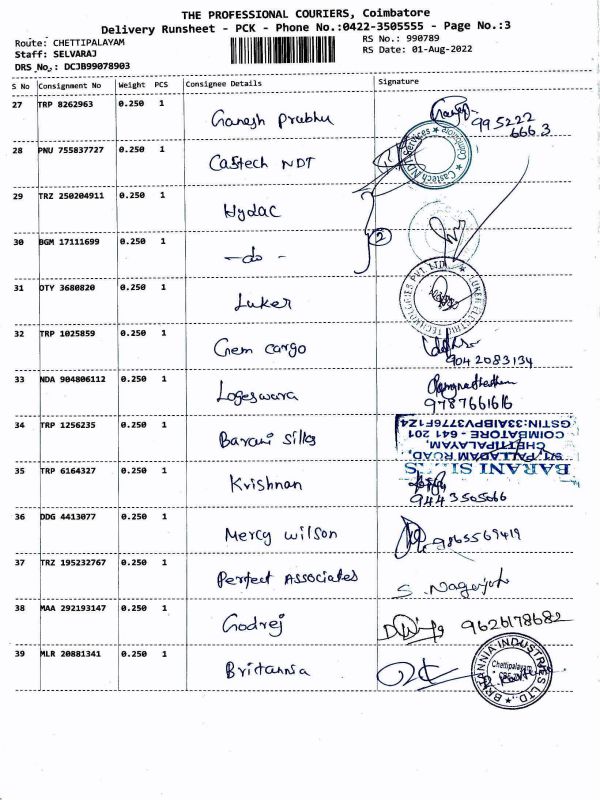 THE PROFESSIONAL COURIERS, Coimbatore
Delivery Runsheet - PCK - Phone No.:0422-3505555 - Page No.:3
Route: CHETTIPALAYAM
RS No.: 990789
Staff: SELVARAJ
RS Date: 01-Aug-2022
DRS No.: DCJB99078903
S No Consignment No Weight PCS Consignee Details Signature
27 TRP 8262963 0.250 1 Ganesh Prabhu 995222
6663
28 PNU 755837727 0.250 1 Castech NDT
Castech NDT Services * Coimbatore *
29 TRZ 250204911 0.250 1 Hydac
30 BGM 17111699 0.250 1 -do- 2
31 DTY 3680820 0.250 1 Luker
LUKER ELECTRIC TECHNOLOGIES PVT. LTD
32 TRP 1025859 0.250 1 Gem cargo
9042083134
33 NDA 904806112 0.250 1 Logeswara
9787661616
34 TRP 1256235 0.250 1 Barani Silks
BARANI
PALLADAM ROAD,
CHETTIPALAYAM,
COIMBATORE - 641 201
GSTIN:33AIBPV3776F1Z4
35 TRP 6164327 0.250 1 Krishnan
9443505066
36 DDG 4413077 0.250 1 Mercy Wilson 9865569419
37 TRZ 195232767 0.250 1 Perfect Associates S. Nagarjun
38 MAA 292193147 0.250 1 Godrej 9626178682
39 MLR 20881341 0.250 1 Britannia
BRITANNIA INDUSTRIES LTD.
Chettipalayam